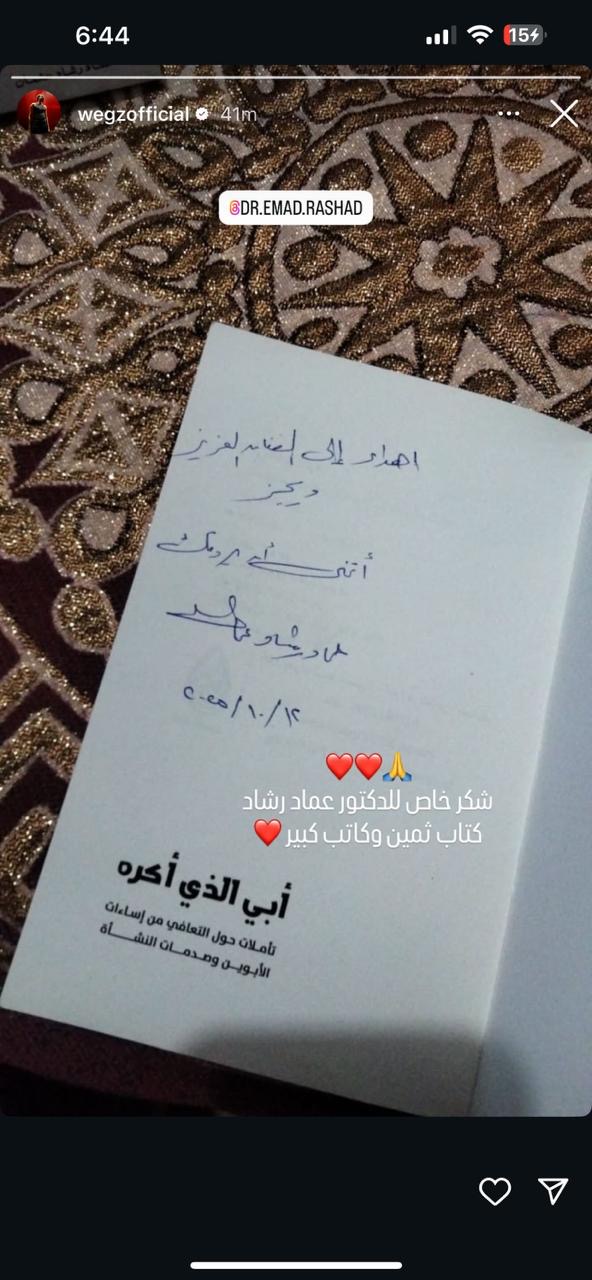 6:44
15
wegzofficial 41m
@DR.EMAD.RASHAD
اهداء إلى الفنان العزيز
ويجز
أتمنى أن يروقك
عماد رشاد
٢٠٢٥/١٠/١٢
شكر خاص للدكتور عماد رشاد
كتاب ثمين وكاتب كبير
أبي الذي أكره
تأملات حول التعافي من إساءات
الأبوين وصدمات النشأة